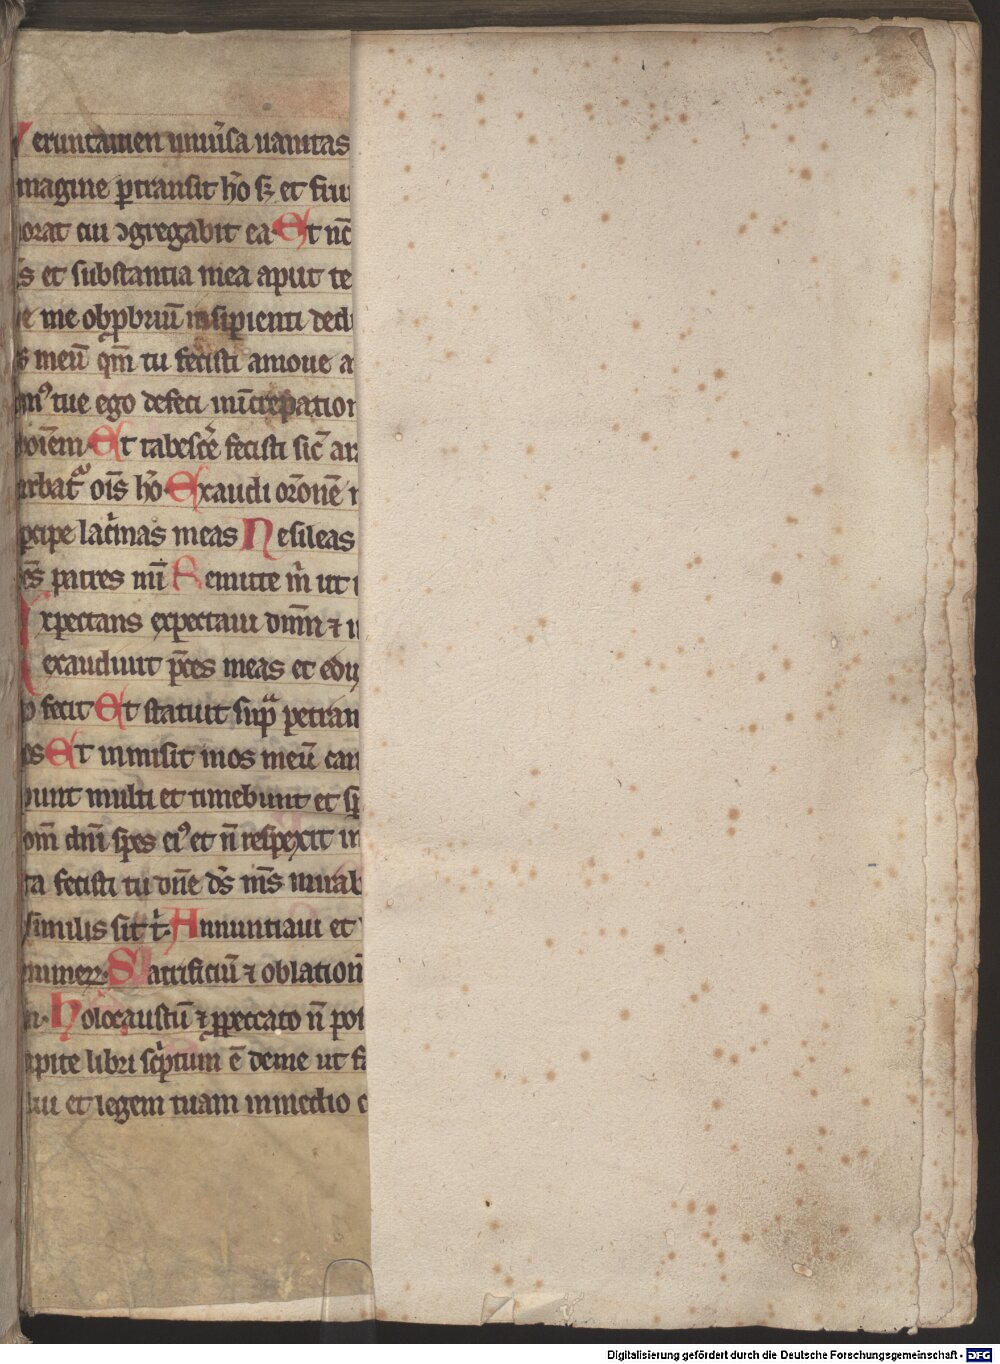 Veruntamen uniūsa uanitas
magine ꝑtransit hō sꝫ et frus
orat cui ꝯgregabit ea Et nc̄
s et substantia mea aput te
e me obꝓbriū insipienti dedi
s meū qm̄ tu fecisti amoue a
tue ego defeci in īcrepation
oīem Et tabescē fecisti sic̄ ar
rbat͛ oīs hō Exaudi orōnē m
ꝑcipe lac͛mas meas Ne sileas
ēs patres mī Remitte m̄ ut
Expectans expectaui dnm̄ ⁊ in
exaudiuit p̄ces meas et edux
fecit Et statuit sup͛ petram
os Et inmisit in os meū can
bunt multi et timebunt et sp
om̄ dn̄i spes eiꝰ et n̄ respexit in
ta fecisti tu dn̄e ds̄ ms̄ mirab
similis sit t͛. Annuntiaui et
numerꝝ. Sacrificiū ⁊ oblation
Holocaustū ⁊ ꝓ peccato n̄ pos
apite libri sc͛ptum ē de me ut fa
lui et legem tuam in medio c
Digitalisierung gefördert durch die Deutsche Forschungsgemeinschaft - DFG